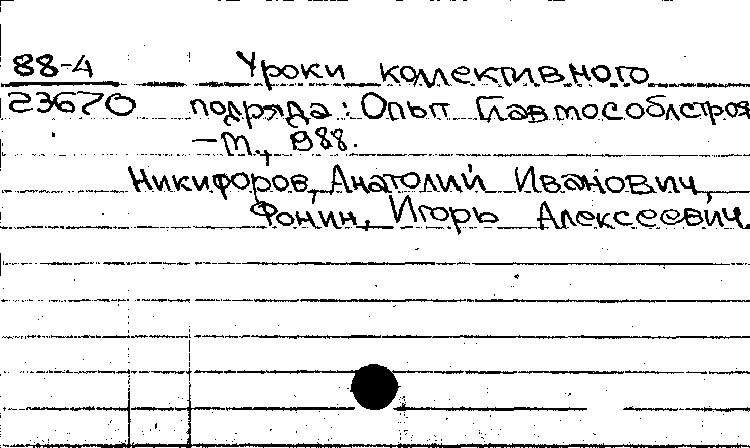 88-4 Уроки коллективного
23670 подряда: Опыт Главмособлстроя
— М., 1988.
Никифоров, Анатолий Иванович,
Фонин, Игорь Алексеевич